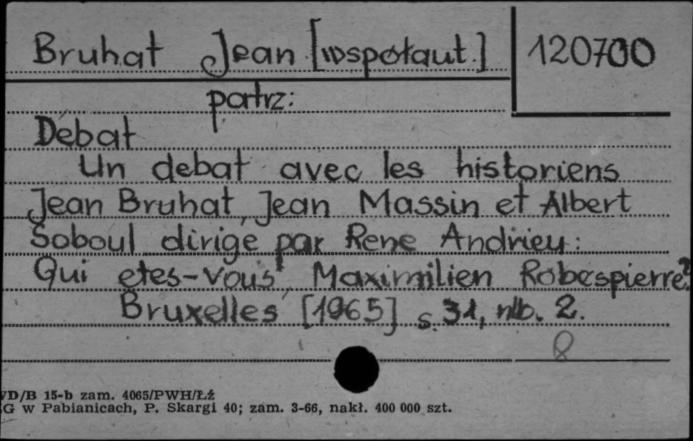 Bruhat Jean [wspołaut.] 120700
patrz:
Debat
Un debat avec les historiens
Jean Bruhat, Jean Massin et Albert
Soboul dirige par Rene Andrieu:
Qui etes-vous, Maximilien Robespierre?
Bruxelles [1965] s. 31, nlb. 2.
8
WD/B 15-b zam. 4065/PWH/Łź
G w Pabianicach, P. Skargi 40; zam. 3-66, nakł. 400 000 szt.